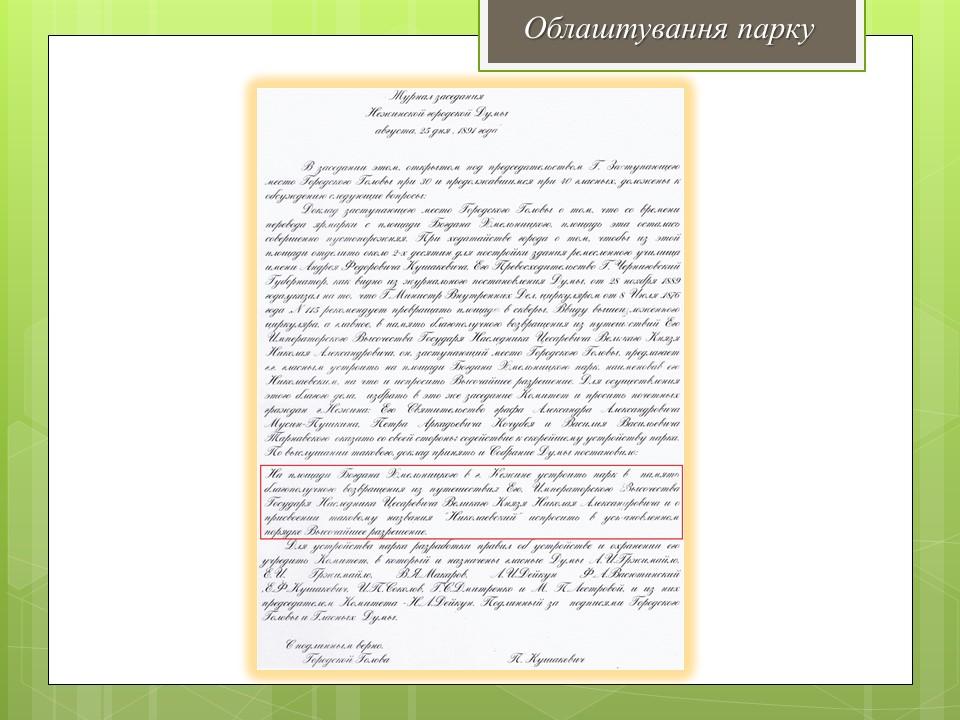 Облаштування парку
Журнал заседания
Нежинской городской Думы
августа, 25 дня, 1891 года
В заседании этом, открытом под председательством Г. Заступающего
место Городского Головы при 30 и продолжавшимся при 40 гласных, доложены к
обсуждению следующие вопросы:
Доклад заступающего место Городского Головы о том, что со времени
перевода ярмарки с площади Богдана Хмельницкого, площадь эта осталась
совершенно пустопорожняя. При ходатайстве города о том, чтобы из этой
площади отделить около 2-х десятин для постройки здания ремесленного училища
имени Андрея Федоровича Кушакевича, Его Превосходительство Г. Черниговский
Губернатор, как видно из журнального постановления Думы, от 28 ноября 1889
года,указал на то, что Г.Министр Внутренних Дел, циркуляром от 8 Июля 1876
года № 115 рекомендует превращать площади в скверы. Ввиду вышеизложенного
циркуляра, а главное, в память благополучного возвращения из путешествий Его
Императорского Высочества Государя Наследника Цесаревича Великого Князя
Николая Александровича, он, заступающий место Городского Головы, предлагает
г.г. гласным устроить на площади Богдана Хмельницкого парк, наименовав его
Николаевским, на что и испросить Высочайшее разрешение. Для осуществления
этого благого дела, избрать в это же заседание Комитет и просить почетных
граждан г.Нежина: Его Сиятельство графа Александра Александровича
Мусин-Пушкина, Петра Аркадьевича Кочубея и Василия Васильевича
Тарнавского оказать со своей стороны содействие к скорейшему устройству парка.
По выслушании такового, доклад принять и Собрание Думы постановило:
На площади Богдана Хмельницкого в г. Нежине устроить парк в память
благополучного возвращения из путешествия Его, Императорского Высочества
Государя Наследника Цесаревича Великого Князя Николая Александровича и о
присвоении таковому названия "Николаевский" испросить в установленном
порядке Высочайшее разрешение.
Для устройства парка разработки правил об устройстве и охранении его
учредить Комитет, в который и назначены гласные Думы А.И.Гржимайло,
Е.И. Гржимайло, В.Я.Макаров, А.И.Дейкун Ф.А.Васютинский
,Е.Ф.Кушакевич, И.П.Соколов, Г.С.Дмитренко и М. П.Лестровой, и из них
председателем Комитета -Н.А.Дейкун. Подлинный за подписями Городского
Головы и Гласных Думы.
С подлинным верно,
Городской Голова П. Кушакевич